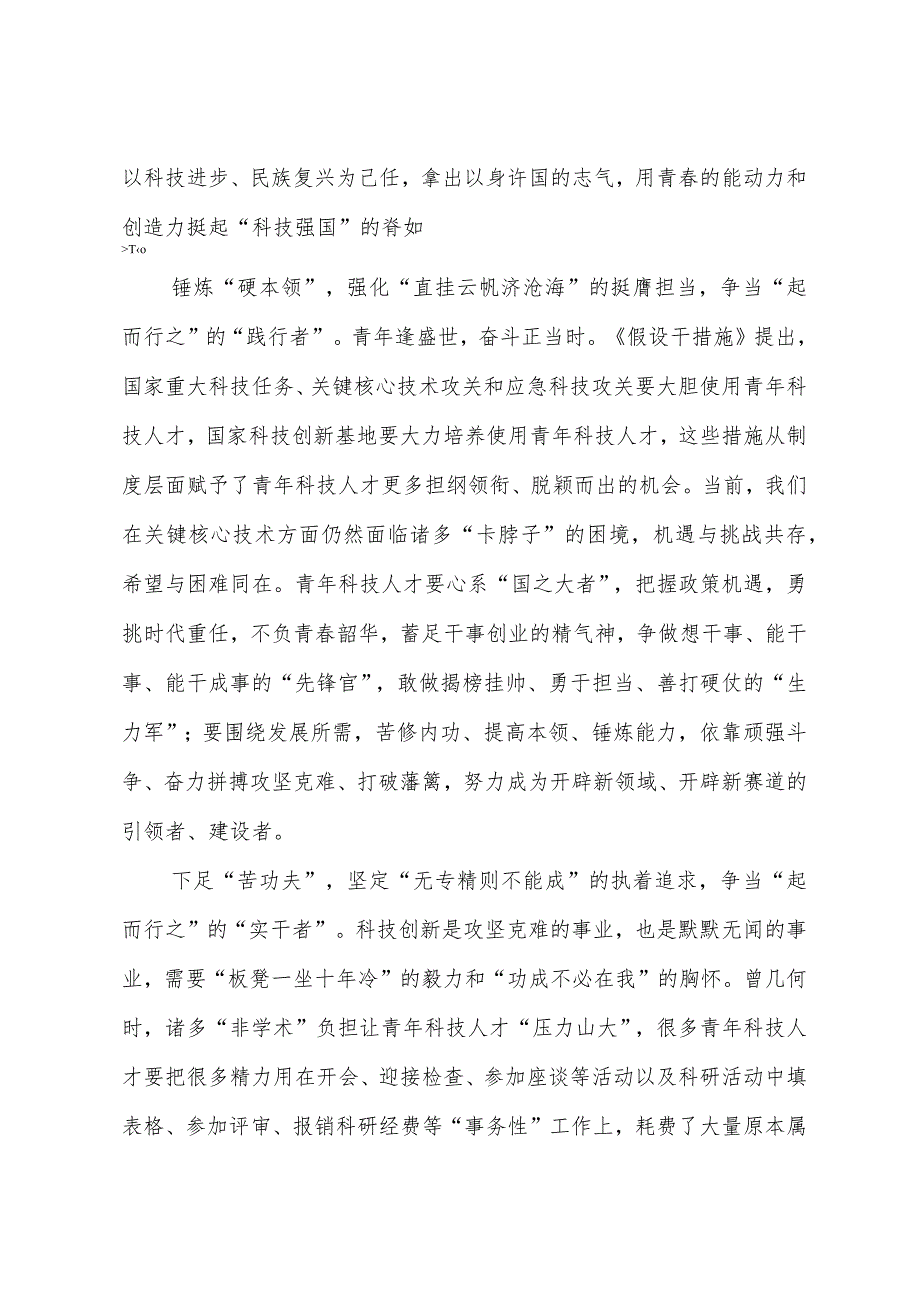 以科技进步、民族复兴为己任，拿出以身许国的志气，用青春的能动力和
创造力挺起“科技强国”的脊如
>T‹o
锤炼“硬本领”，强化“直挂云帆济沧海”的挺膺担当，争当“起
而行之”的“践行者”。青年逢盛世，奋斗正当时。《假设干措施》提出，
国家重大科技任务、关键核心技术攻关和应急科技攻关要大胆使用青年科
技人才，国家科技创新基地要大力培养使用青年科技人才，这些措施从制
度层面赋予了青年科技人才更多担纲领衔、脱颖而出的机会。当前，我们
在关键核心技术方面仍然面临诸多“卡脖子”的困境，机遇与挑战共存，
希望与困难同在。青年科技人才要心系“国之大者”，把握政策机遇，勇
挑时代重任，不负青春韶华，蓄足干事创业的精气神，争做想干事、能干
事、能干成事的“先锋官”，敢做揭榜挂帅、勇于担当、善打硬仗的“生
力军”；要围绕发展所需，苦修内功、提高本领、锤炼能力，依靠顽强斗
争、奋力拼搏攻坚克难、打破藩篱，努力成为开辟新领域、开辟新赛道的
引领者、建设者。
下足“苦功夫”，坚定“无专精则不能成”的执着追求，争当“起
而行之”的“实干者”。科技创新是攻坚克难的事业，也是默默无闻的事
业，需要“板凳一坐十年冷”的毅力和“功成不必在我”的胸怀。曾几何
时，诸多“非学术”负担让青年科技人才“压力山大”，很多青年科技人
才要把很多精力用在开会、迎接检查、参加座谈等活动以及科研活动中填
表格、参加评审、报销科研经费等“事务性”工作上，耗费了大量原本属